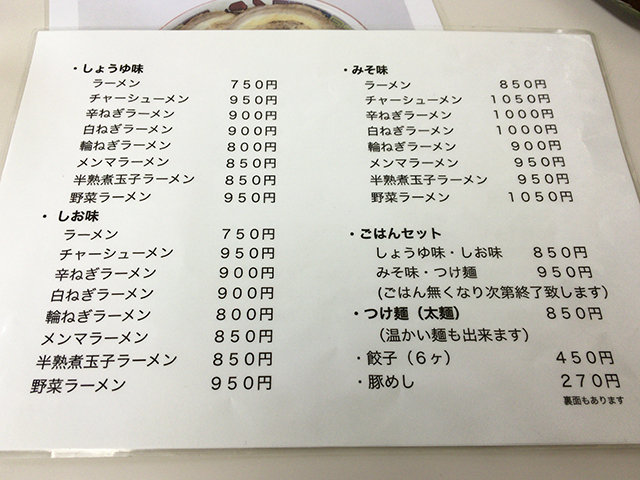 ・しょうゆ味
ラーメン 750円
チャーシューメン 950円
辛ねぎラーメン 900円
白ねぎラーメン 900円
輪ねぎラーメン 800円
メンマラーメン 850円
半熟煮玉子ラーメン 850円
野菜ラーメン 950円
・しお味
ラーメン 750円
チャーシューメン 950円
辛ねぎラーメン 900円
白ねぎラーメン 900円
輪ねぎラーメン 800円
メンマラーメン 850円
半熟煮玉子ラーメン 850円
野菜ラーメン 950円
・みそ味
ラーメン 850円
チャーシューメン 1050円
辛ねぎラーメン 1000円
白ねぎラーメン 1000円
輪ねぎラーメン 900円
メンマラーメン 950円
半熟煮玉子ラーメン 950円
野菜ラーメン 1050円
・ごはんセット
しょうゆ味・しお味 850円
みそ味・つけ麺 950円
(ごはん無くなり次第終了致します)
・つけ麺（太麺） 850円
（温かい麺も出来ます）
・餃子（6ヶ） 450円
・豚めし 270円
裏面もあります